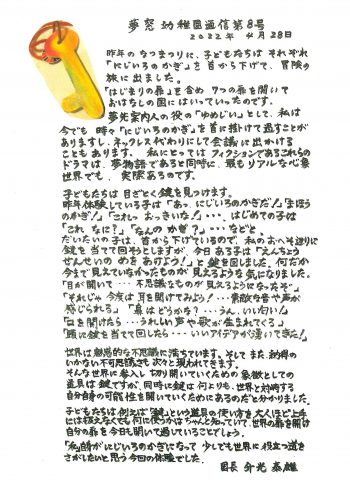 夢窓幼稚園通信第8号
2022年 4月28日
昨年のなつまつりに、子どもたちは それぞれ
「にじいろのかぎ」を首から下げて、冒険の
旅に出ました。
「はじまりの扉」を含め 7つの扉を開いて
おはなしの国にはいっていったのです。
夢先案内人の役の「ゆめじい」として、私は
今でも 時々「にじいろのかぎ」を首に掛けて過すことが
ありますし、ネックレス代わりにして会議に出かける
こともあります。 私にとっては フィクションであるこれらの
ドラマは、夢物語であると同時に、最もリアルな心象
世界でも、実際あるのです。
子どもたちは 目ざとく鍵を見つけます。
昨年体験している子は「あっ にじいろのかぎだ!」「まほう
のかぎ!」「これっ おっきいな!」・・・、はじめての子は
「これ なに?」「なんの かぎ?」・・・などと。
だいたいの子は、首から下げているので、私の おへそ辺りに
鍵を当てて回そうとしますが、今日 ある子は「えんちょう
せんせいの めを あけよう!」と 鍵を回しました。何だか
今まで見えていなかったものが 見えるような 気になりました。
「目が開いて・・・不思議なものが 見えるようになったぞ」
「それじゃ 今度は 耳を開けてみよう!・・・素敵な音や声が
感じられる」「鼻はどうかな?・・・うん、いい匂い!」
「口を開けたら・・・うれしい声や歌が 生まれてくる」
「頭に鍵を当てて回したら・・・いいアイデアが湧いてきた!」
世界は魅惑的な不思議に満ちています。そして また、納得の
いかない不可思議さも 次々と現われてきます。
そんな世界に参入し切り開いていくための 象徴としての
道具は 鍵ですが、同時に鍵は何よりも、世界と対峙する
自分自身の可能性を開いていくためにあるのだと分かりました。
子どもたちは 例えば「鍵」という道具の使い方を 大人ほど上手
には扱えなくても 何に使うかは ちゃんと知っていて、世界の扉を開け
自分の扉を今日も開いて過していることでしょう。
「私」自身が にじいろのかぎになって 少しでも世界に役立つ道を
さがしたいと思う 今回の体験でした。
園長 升光 泰雄